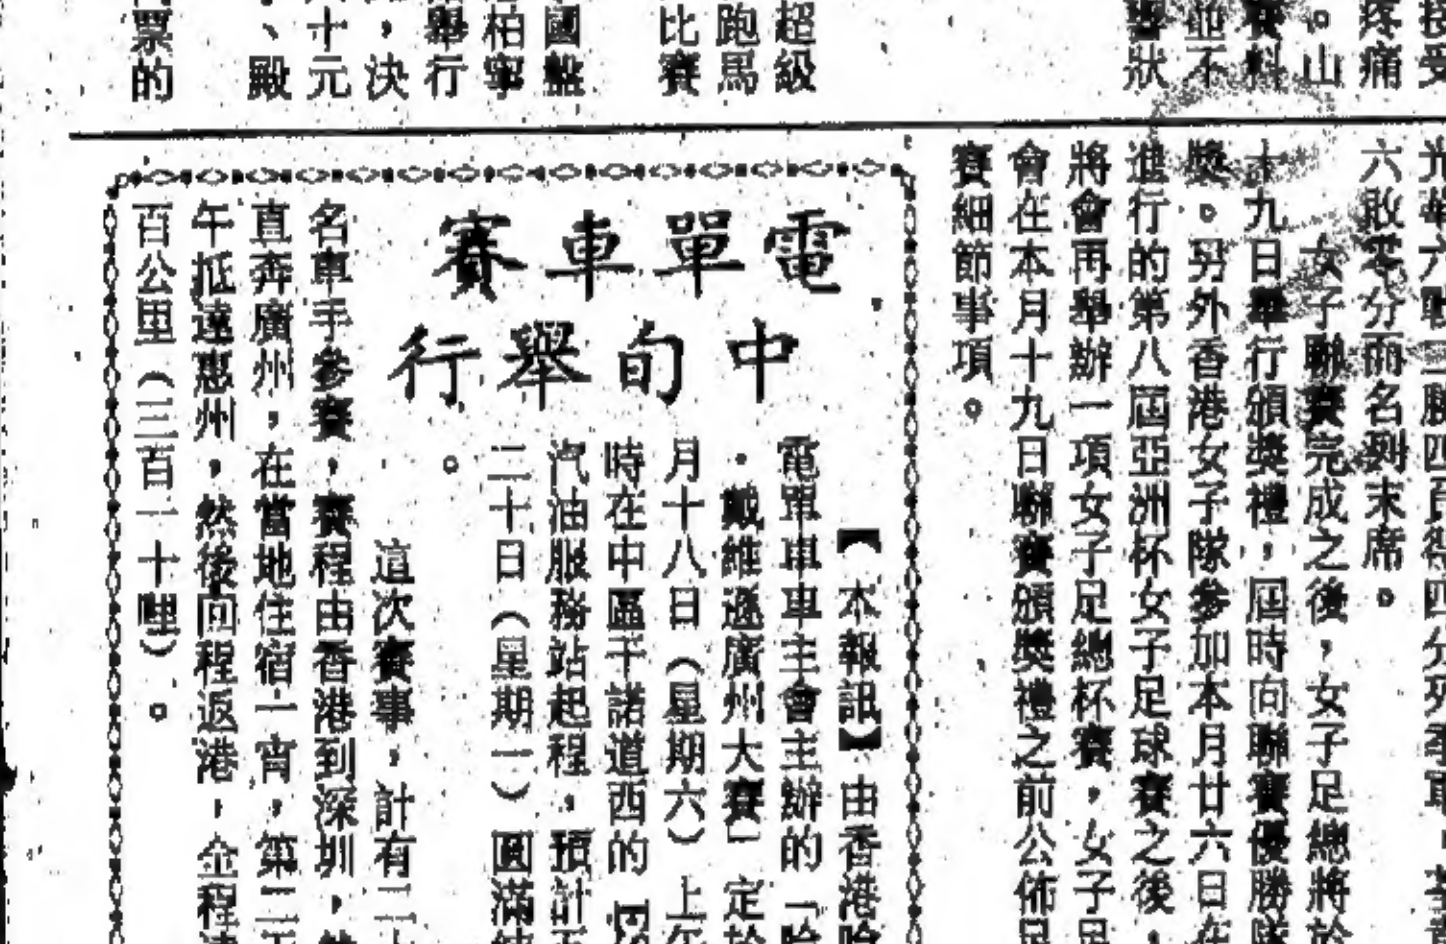 超級
跑馬
比賽
國盤
柏寧
舉行
，決
十元
、殿
票的
接受
疼痛
。山
賽料
並不
醫狀
光華六戰三勝四負得四分列季軍，
六敗零分而名列末席。
女子聯賽完成之後，女子足總將於
十九日舉行頒獎禮，屆時向聯賽優勝隊
獎。另外香港女子隊參加本月廿六日在
進行的第八屆亞洲杯女子足球賽之後，
將會再舉辦一項女子足總杯賽，女子足
會在本月十九日聯賽頒獎禮之前公佈足
賽細節事項。
電單車賽
中旬舉行
【本報訊】由香港哈
電單車車主會主辦的「哈
・戴維遜廣州大賽」定於
月十八日（星期六）上午
時在中區干諾道西的
汽油服務站起程，預計
二十日（星期一）圓滿結
。
這次賽事，計有二十
名車手參賽，賽程由香港到深圳，然
直奔廣州，在當地住宿一宵，第二天
午抵達惠州，然後回程返港，全程達
百公里（三百一十哩）。